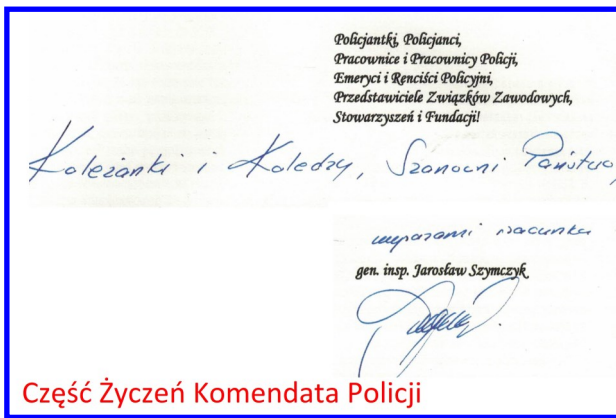 Policjantki, Policjanci,
Pracownice i Pracownicy Policji,
Emeryci i Renciści Policyjni,
Przedstawiciele Związków Zawodowych,
Stowarzyszeń i Fundacji!
Koleżanki i Koledzy, Szanowni Państwo,
wyrazami szacunku
gen. insp. Jarosław Szymczyk
Część Życzeń Komendata Policji